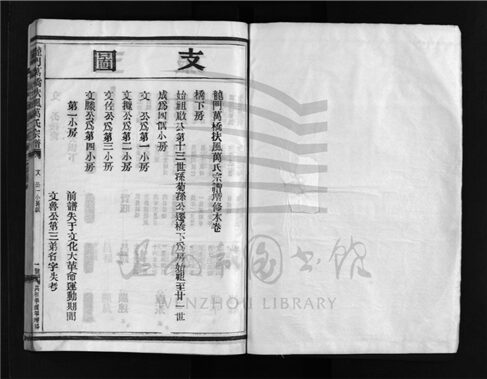 支圖
龍門萬橋扶風萬氏宗譜增修木卷
橋下房
始祖敢公第十三世孫菊孫公遷橋下爲房始祖至廿一世
成爲四個小房
文 公爲第一小房
文擬公爲第二小房
文佐公爲第三小房
文騰公爲第四小房
第一小房
前譜失于文化大革命運動期間
文魯公第三弟名字失考
龍門萬橋扶風萬氏宗譜
溫州市圖書館
WENZHOU LIBRARY